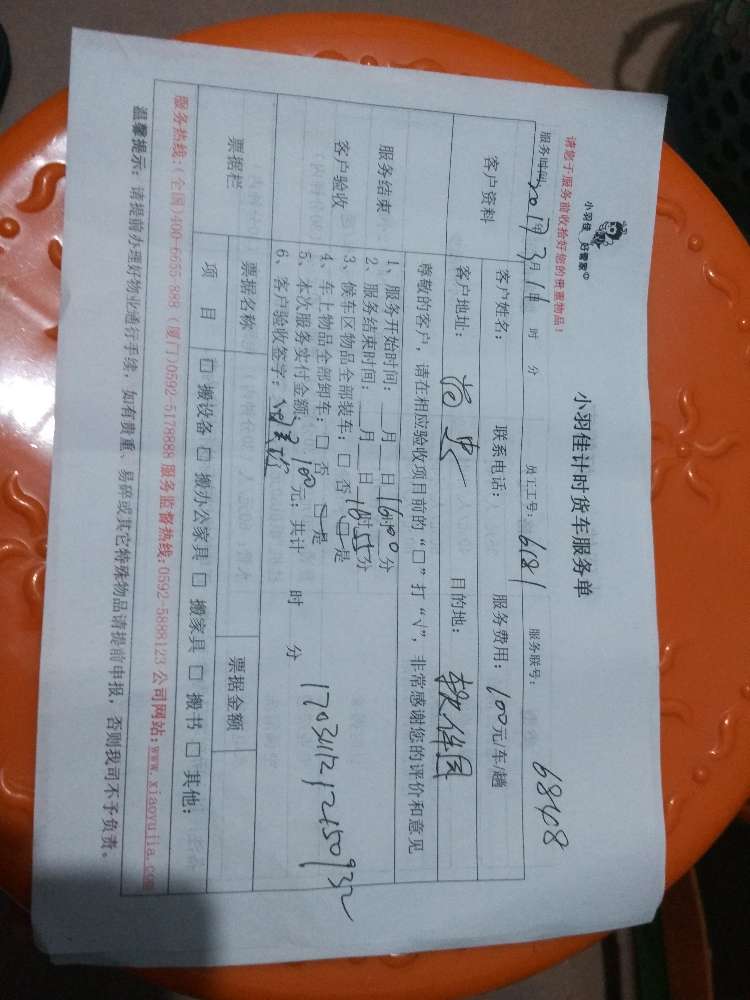 请您于服务前收拾好您的贵重物品！
小羽佳 好管家
小羽佳计时货车服务单
服务时间：2017年3月1日 时 分 员工工号：6181 服务联号： 6848
客户资料 客户姓名： 联系电话： 服务费用：100元/车/趟
客户地址： 目的地：软件园
服务结束客户验收
尊敬的客户，请在相应验收项目前的“□”打“√”，非常感谢您的评价和意见
1、服务开始时间： 月 日16时00分
2、服务结束时间： 月 日18时55分
3、候车区物品全部装车：□ 否 □是
4、车上物品全部卸车：□ 否 □是
5、本次服务实付金额：100元；共计 时 分
6、客户验收签字：
票据栏 票据名称 票据金额
项 目 □ 搬设备 □ 搬办公家具 □ 搬家具 □ 搬书 □ 其他：
服务热线:(全国)400-6655-888 (厦门)0592-5178888 服务监督热线:0592-5888123 公司网站:www.xiaoyujia.com
温馨提示：请提前办理好物业通行手续，如有贵重、易碎或其它特殊物品请提前申报，否则我司不予负责。